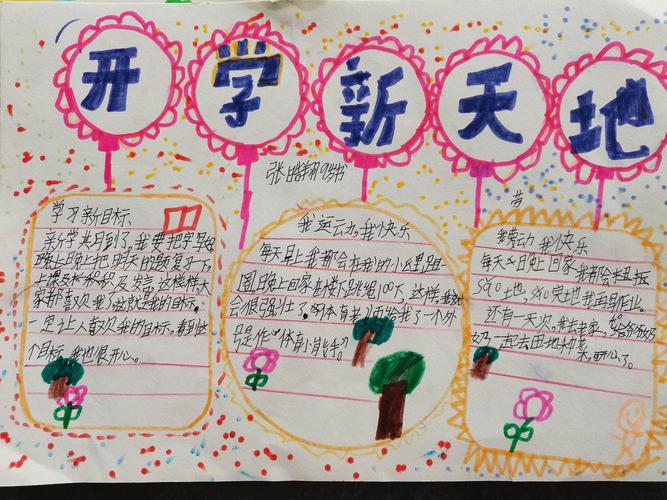 开学新天地
张皓翔 9岁书
学习新目标
新学期到了，我要把字写
晚上晚上把明天的题复习下，
上课及积极及发言，这样样大
家都喜欢我了这就是我的目标。
一定让人喜欢我的目标，看到这
个目标，我也很开心。
我运动，我快乐
每天早上我都会在我的小区里跑
圈，晚上回家在楼下跳绳100下，这样我就
会很强壮了。体育老师再给我了一个外
号是作“体育小能手”
劳
我动 我快乐
每天晚上回家我都会
地，完地我再写作业。
还有一天次，我去老家，爷爷奶
奶一起去田地种菜，开心了。